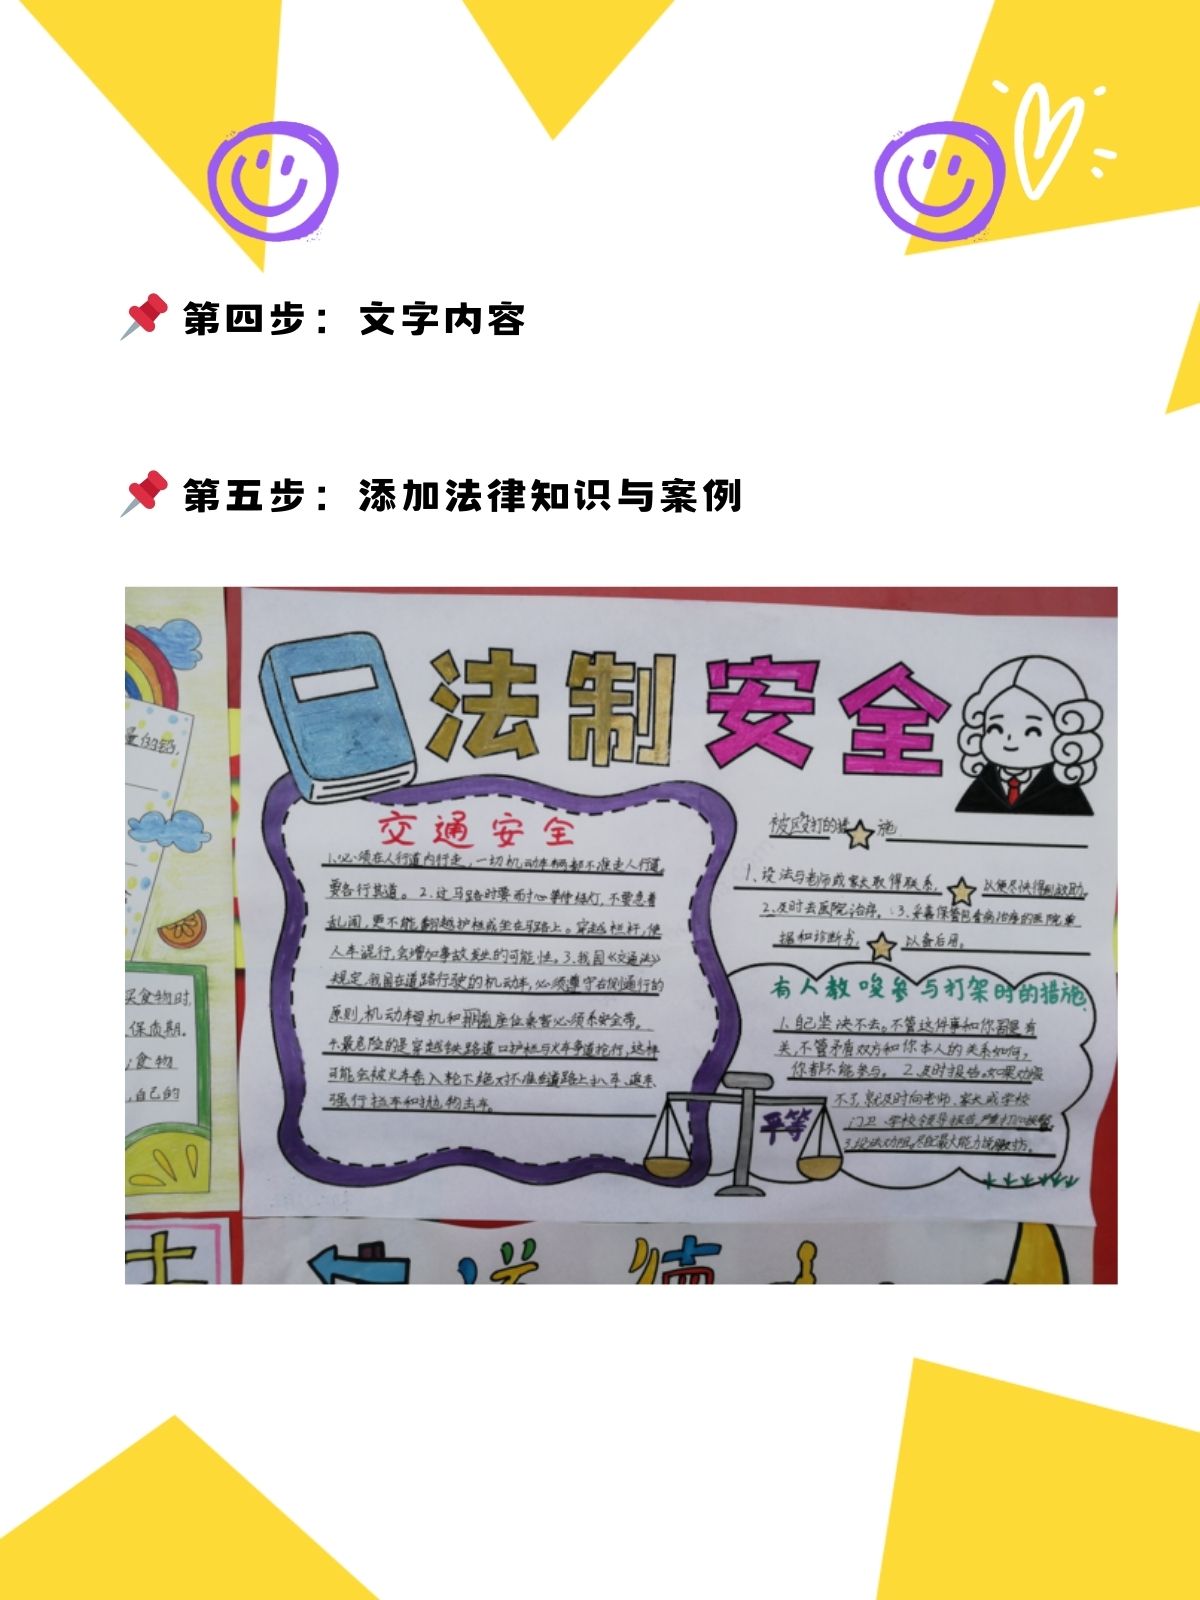 第四步：文字内容
第五步：添加法律知识与案例
法制安全
交通安全
1.必须在人行道内行走，一切机动车辆都不准走人行道，
要各行其道。2.过马路时要耐心等待绿灯，不要急着
乱闯，更不能翻越护栏或坐在马路上。穿越栏杆，使
人车混行，会增加事故发生的可能性。3.我国《交通法》
规定，我国在道路行驶的机动车，必须遵守右侧通行的
原则，机动车司机和前面座位乘客必须系安全带。
4.最危险的是穿越铁路道口护栏与火车争道抢行，这样
可能会被火车卷入轮下绝对不准在道路上扒车、追车
强行拦车和抛物击车。
被殴打的措施
1、设法与老师或家长取得联系，以便尽快得到救助。
2.及时去医院治疗。3.妥善保管包括病治疗的医院单
据和诊断书，以备后用。
有人教唆参与打架时的措施
1.自己坚决不去。不管这件事和你是有
关，不管矛盾双方和你本人的关系如何，
你都不能参与。2.及时报告。如果劝服
不了，就及时向老师、家长或学校
门卫、学校领导报告，严重打110报警
3.设法劝阻。尽最大能力说服劝。
平等
量的铅，
买食物时，
保质期。
食物
自己的
法
道德